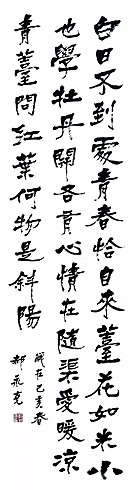 白日不到處青春恰自來薹花如米小
也學牡丹開各有心情在隨渠愛暖涼
青薹問紅葉何物是斜陽
歲在己亥春